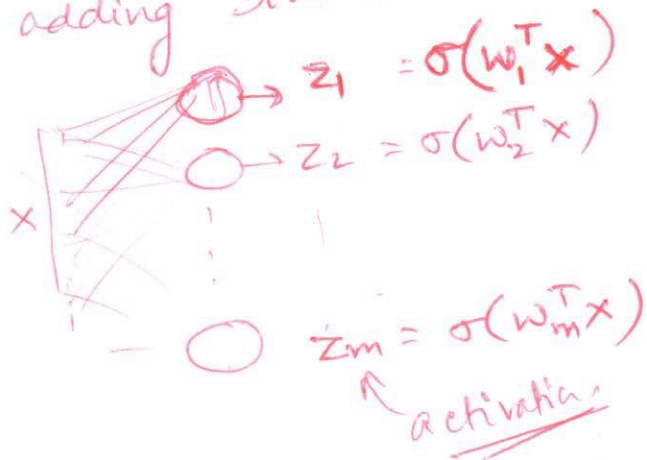 adding
z₁ = σ(w₁ᵀx)
z₂ = σ(w₂ᵀx)
x
zₘ = σ(wₘᵀx)
activation